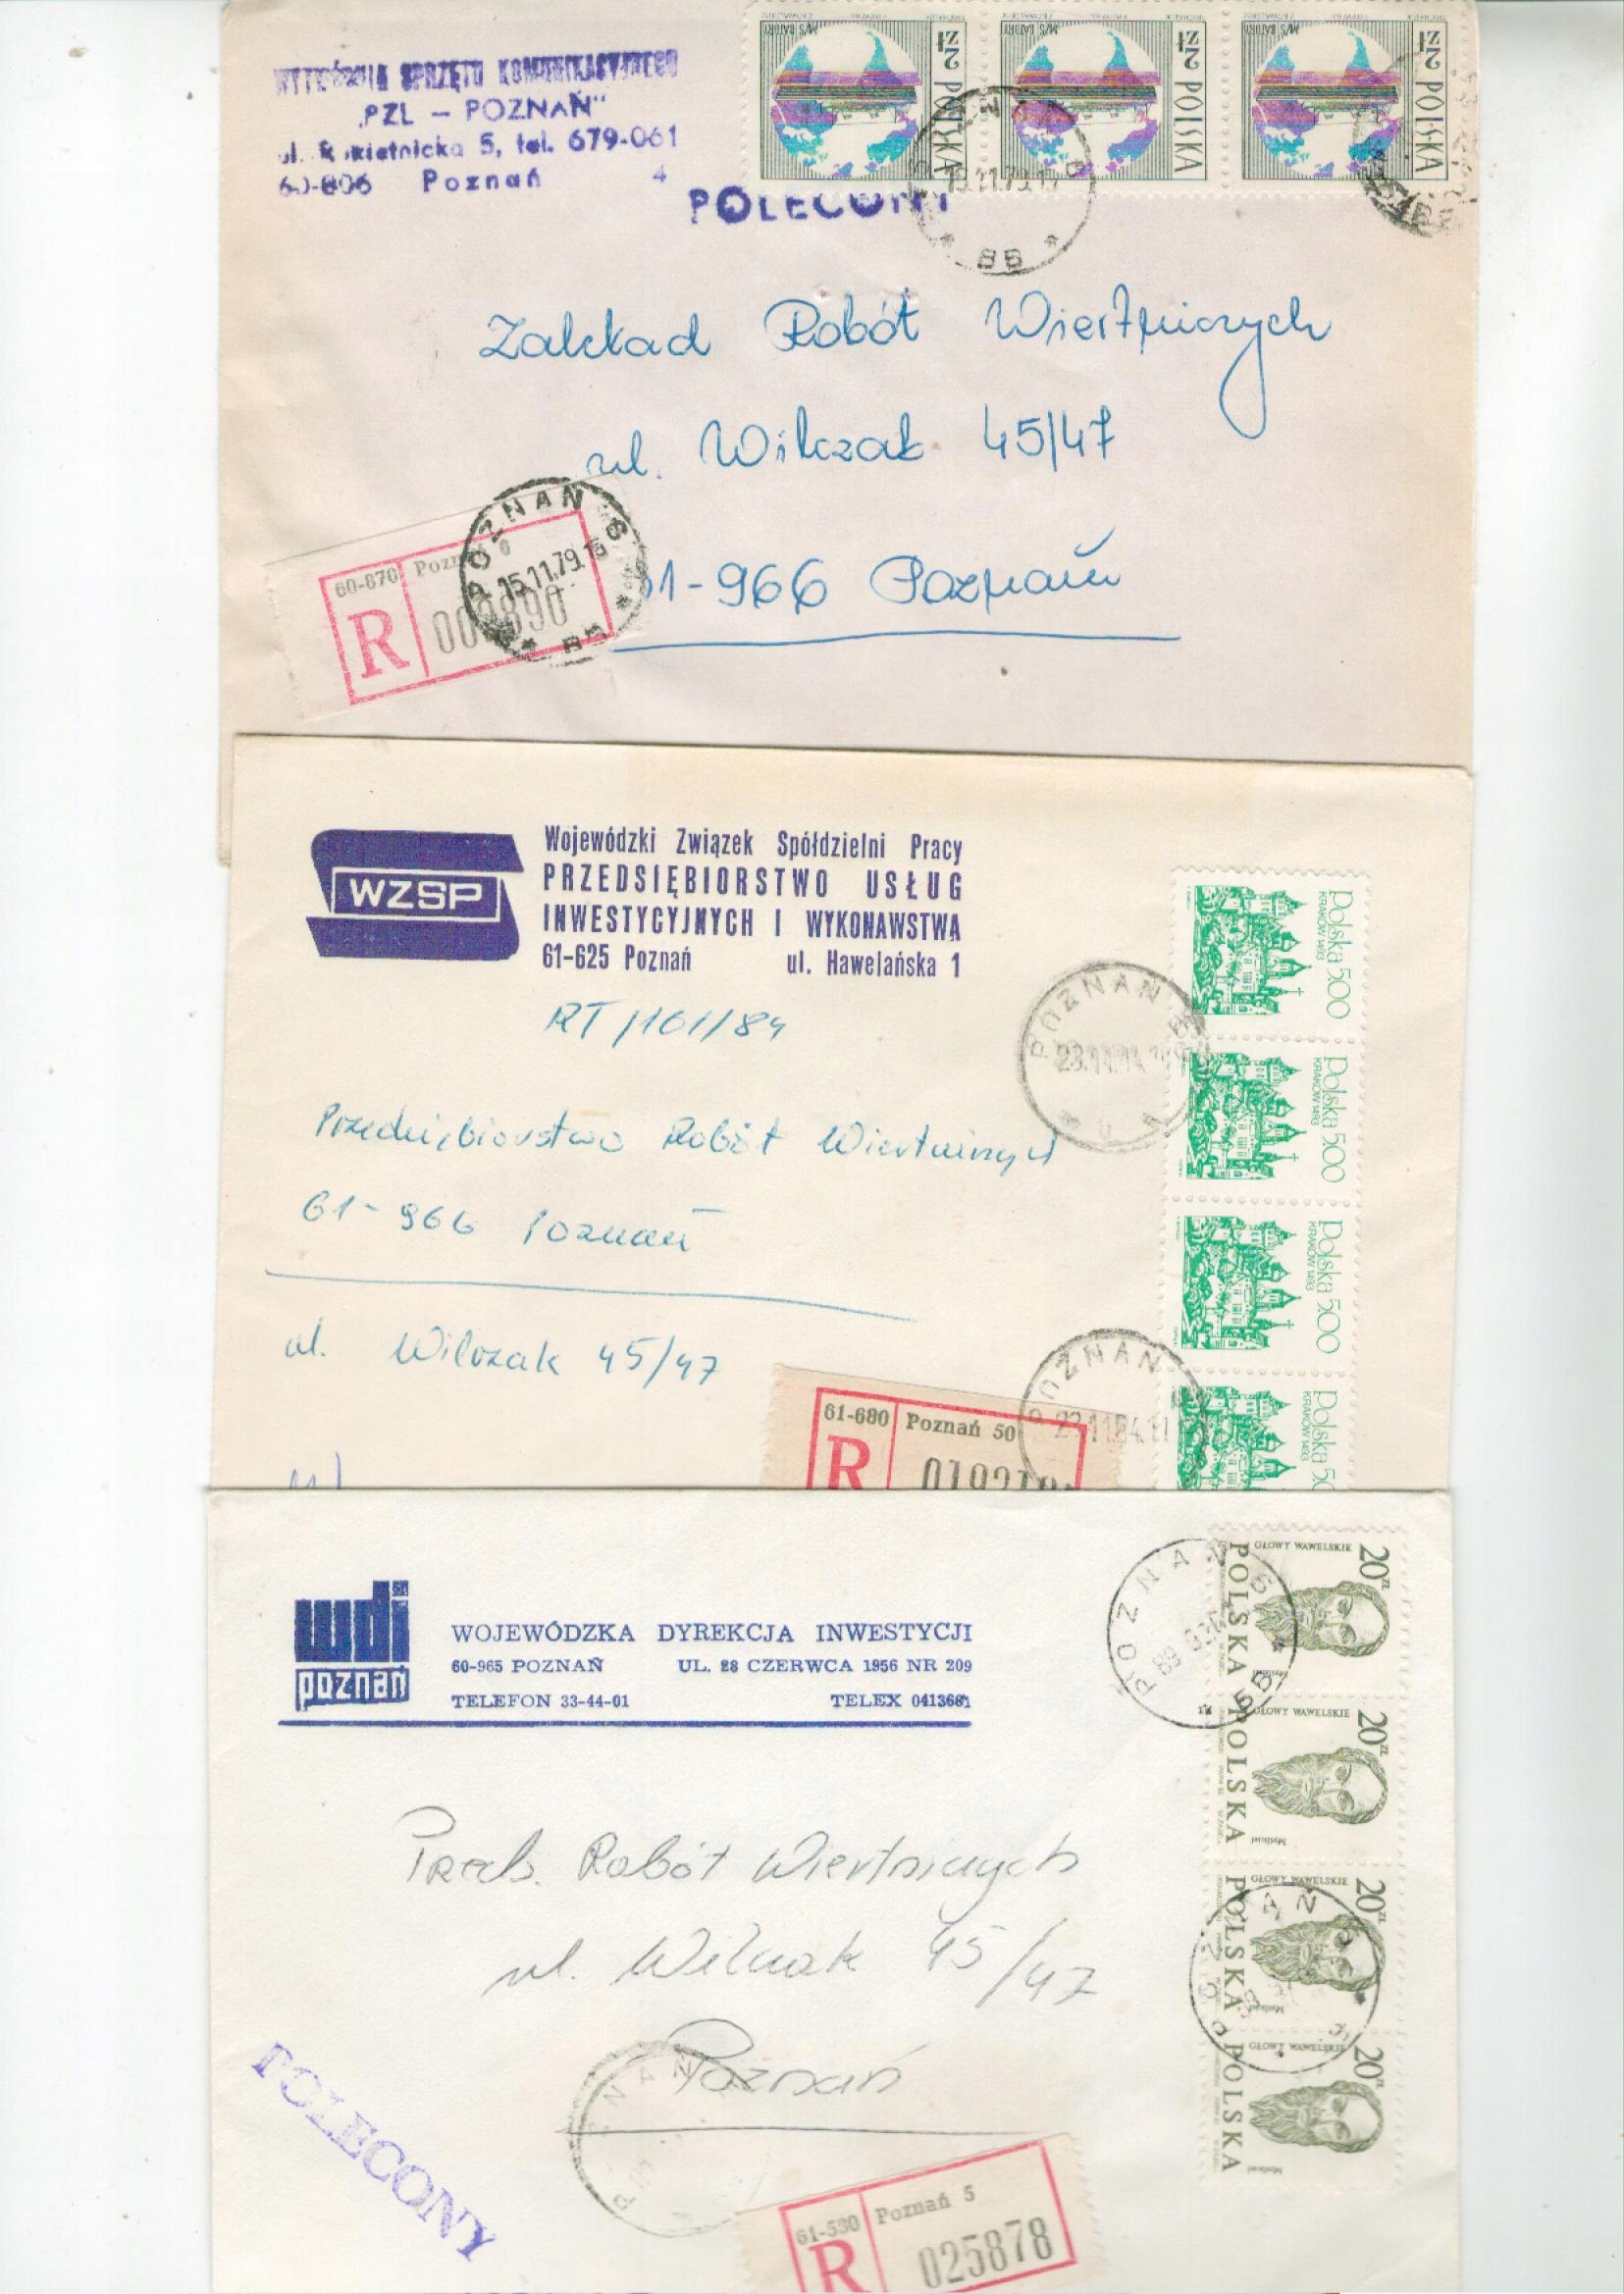 WYTWÓRNIA SPRZĘTU KOMUNIKACYJNEGO
„PZL — POZNAŃ"
ul. Rokietnicka 5, tel. 679-061
60-806 Poznań 4
POLECONY
M/S BATORY
2 ZŁ POLSKA
M/S BATORY
2 ZŁ POLSKA
M/S BATORY
2 ZŁ POLSKA
15.11.79
BB
Zakład Robót Wiertniczych
ul. Wilczak 45/47
61-966 Poznań
60-870 Poznań 6
R
POZNAŃ 6
15.11.79.15
BB
WZSP
Wojewódzki Związek Spółdzielni Pracy
PRZEDSIĘBIORSTWO USŁUG
INWESTYCYJNYCH I WYKONAWSTWA
61-625 Poznań ul. Hawelańska 1
RT/101/84
Polska 5.00
KRAKÓW 1493
Polska 5.00
KRAKÓW 1493
Polska 5.00
KRAKÓW 1493
Polska 5.0
KRAKÓW 1493
POZNAŃ
Przedsiębiorstwo Robót Wiertniczych
61-966 Poznań
ul. Wilczak 45/47
61-680 Poznań 50
R
POZNAŃ
wdi
poznań
WOJEWÓDZKA DYREKCJA INWESTYCJI
60-965 POZNAŃ UL. 28 CZERWCA 1956 NR 209
TELEFON 33-44-01 TELEX 0413681
GŁOWY WAWELSKIE 20 ZŁ
POLSKA
GŁOWY WAWELSKIE 20 ZŁ
POLSKA
GŁOWY WAWELSKIE 20 ZŁ
POLSKA
GŁOWY WAWELSKIE 20 ZŁ
POLSKA
POZNAŃ
Przeds. Robót Wiertniczych
ul. Wilczak 45/47
Poznań
POLECONY
61-530 Poznań 5
R 025878